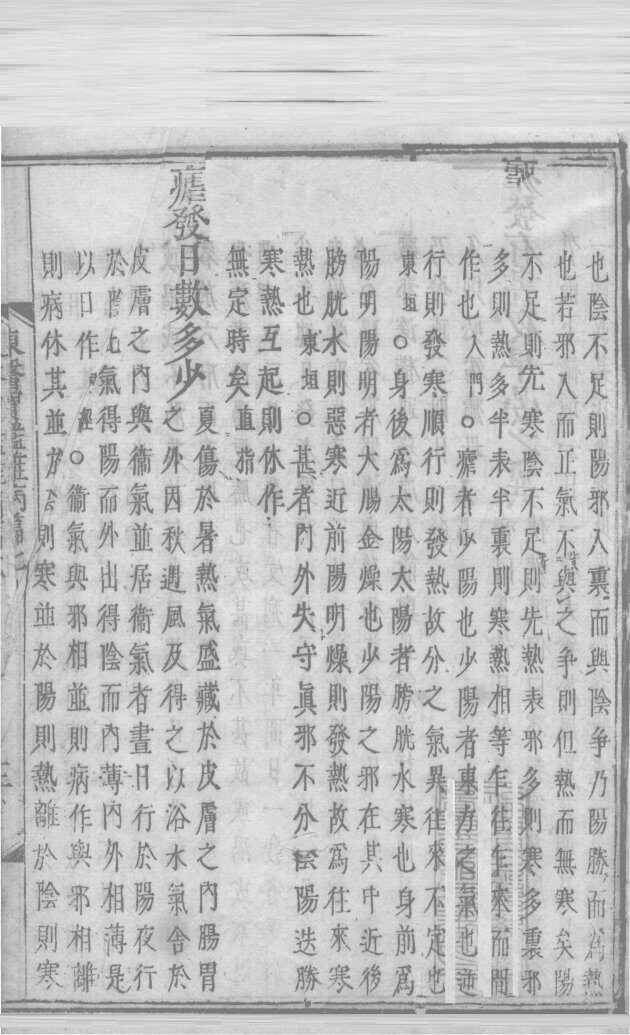 也陰不足則陽邪入裏而與陰爭乃陽勝而爲熱
也若邪入而正氣不與之爭則但熱而無寒矣陽
不足則先寒陰不足則先熱表邪多則寒多裏邪
多則熱多半表半裏則寒熱相等乍往乍來而間
作也入門○瘧者少陽也少陽者東方之氣也逆
行則發寒順行則發熱故分之氣異往來不定也
東垣○身後爲太陽太陽者膀胱水寒也身前爲
陽明陽明者大腸金燥也少陽之邪在其中近後
膀胱水則惡寒近前陽明燥則發熱故爲往來寒
熱也東垣○甚者內外失守眞邪不分陰陽迭勝
寒熱互起則休作
無定時矣直指
瘧發日數多少夏傷於暑熱氣盛藏於皮膚之內腸胃
之外因秋遇風及得之以浴水氣舍於
皮膚之內與衞氣並居衞氣者晝日行於陽夜行
於陰此氣得陽而外出得陰而內薄內外相薄是
以日作內經○衞氣與邪相並則病作與邪相離
則病休其並於陰則寒並於陽則熱離於陰則寒